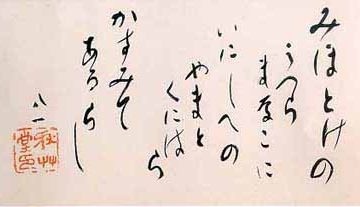 みほとけの
うつら
まなこに
いにしへの
やまと
くにはら
かすみて
あるらし
八一
秋艸
堂印